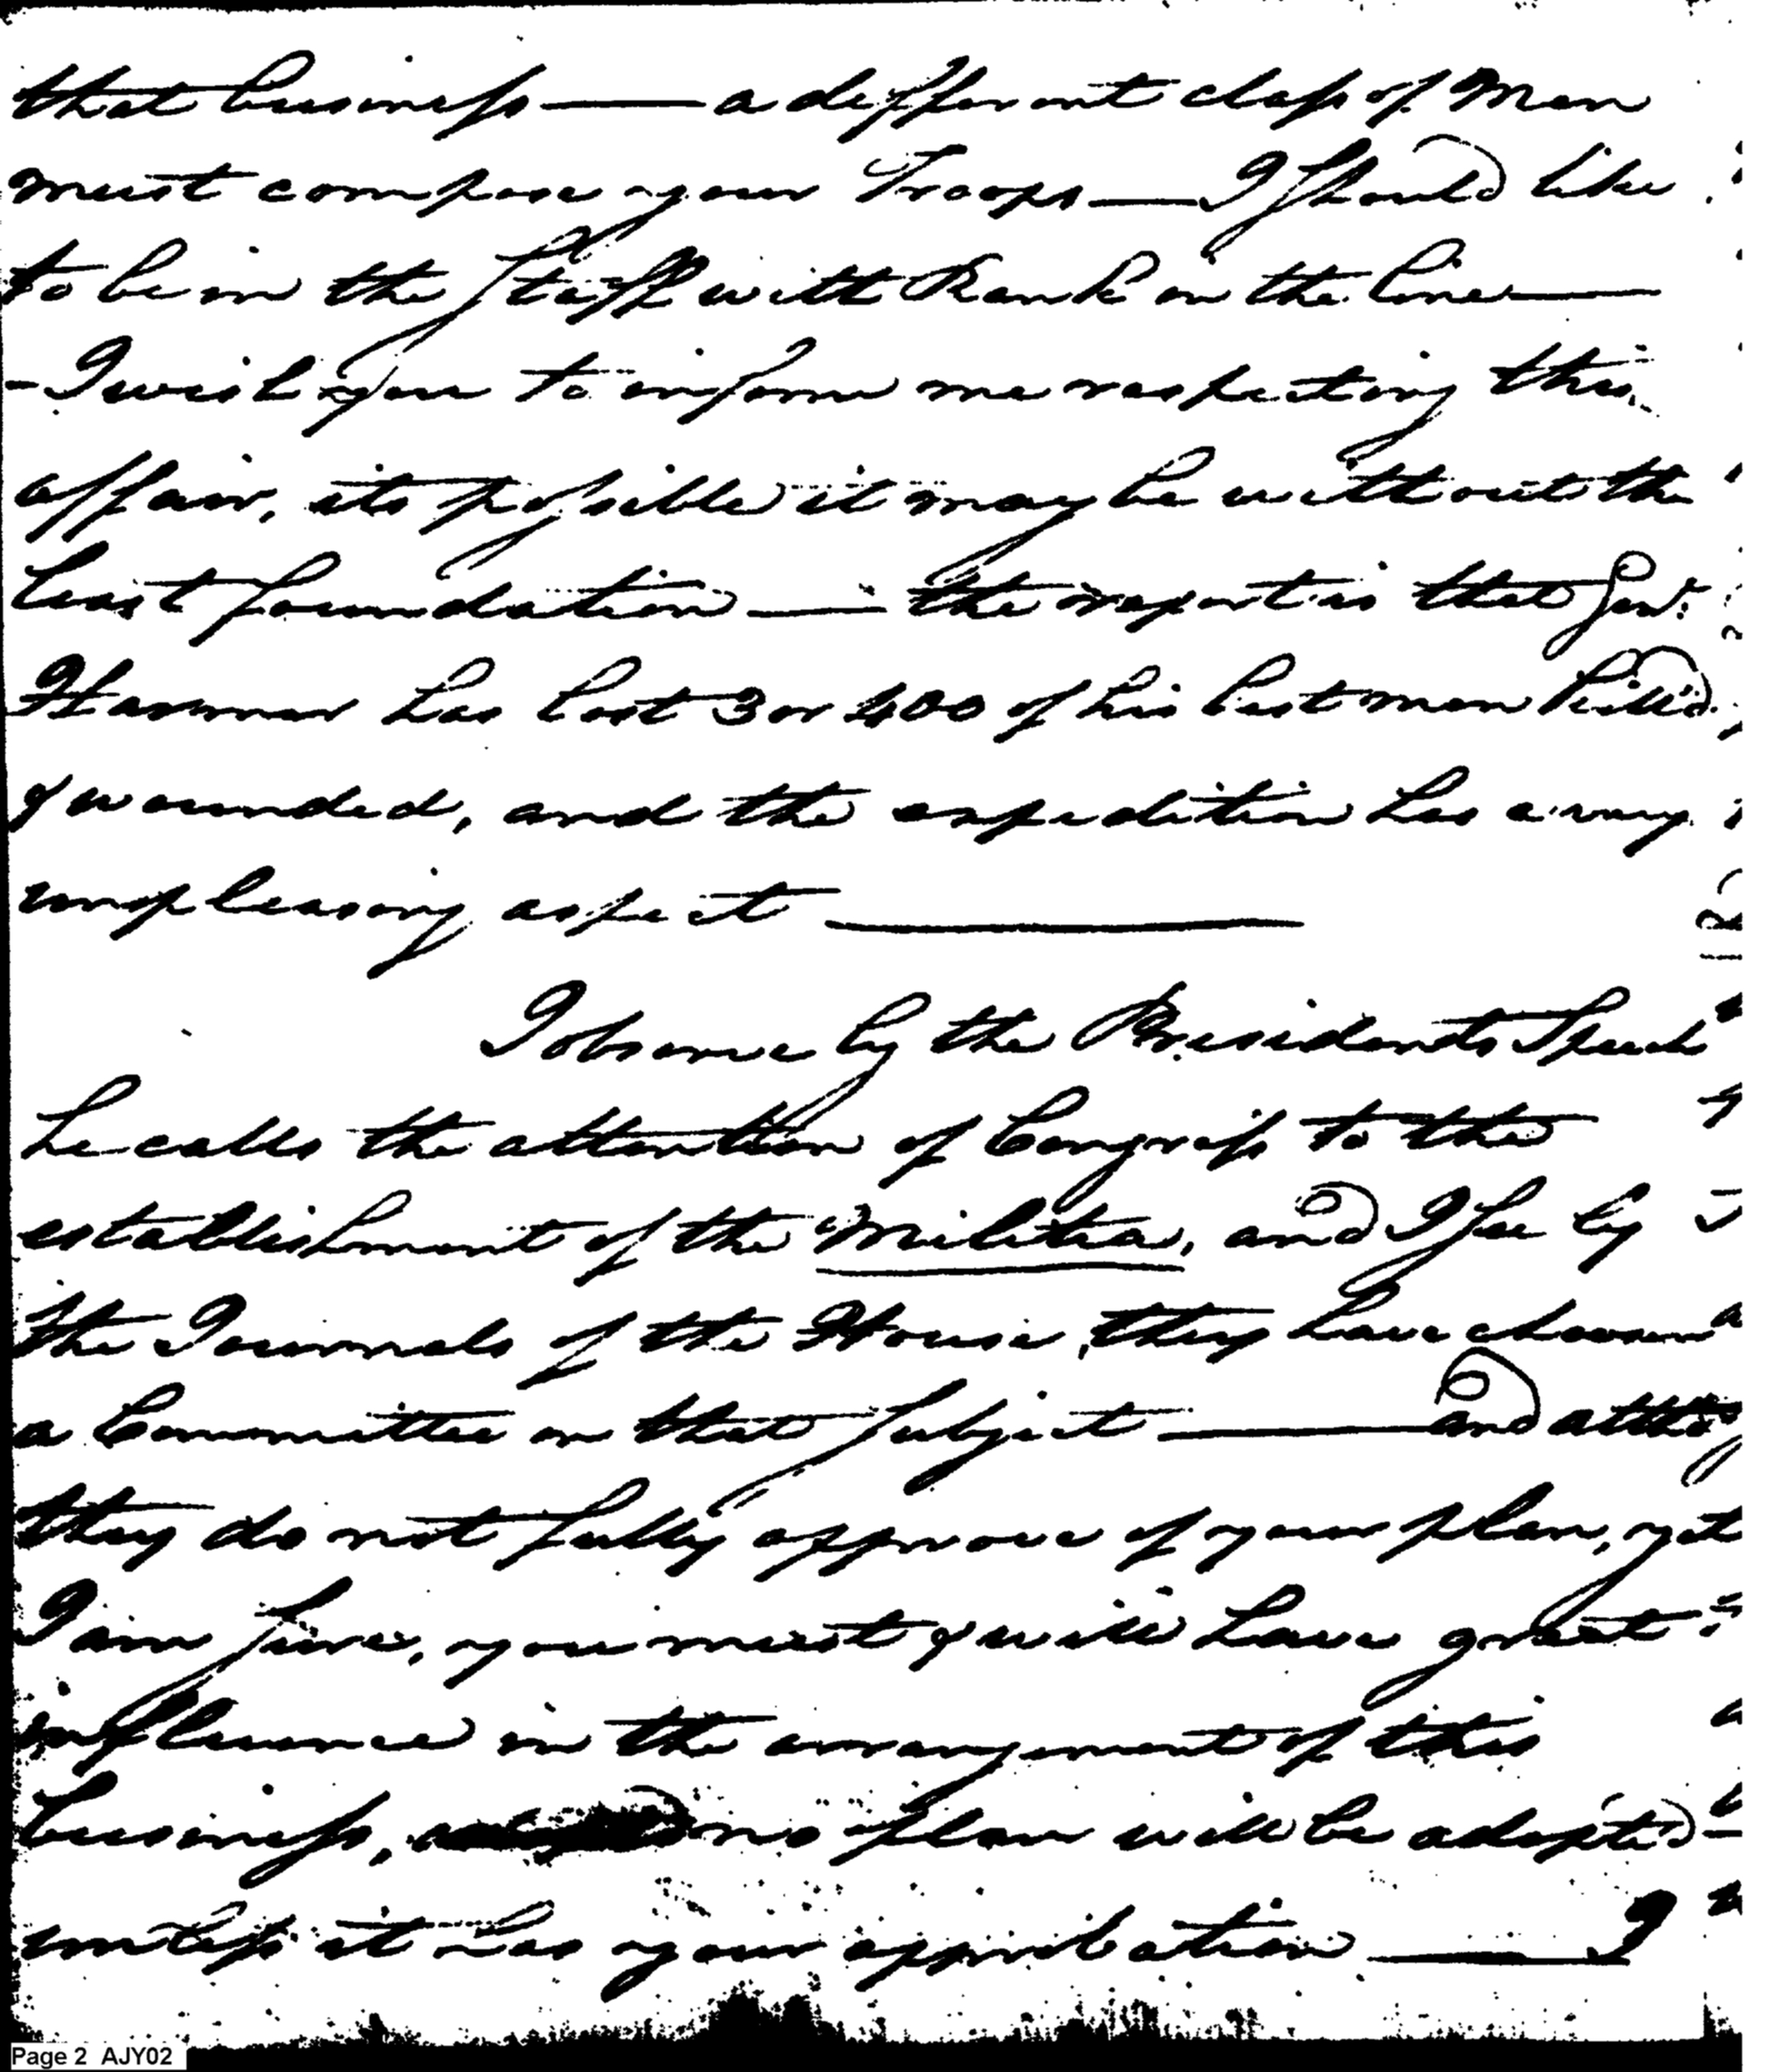 that business — a different class of Men
must compose your Troops — I should like
to be in the Staff with Rank in the line —
- I wish you to inform me respecting this
affair, its possible it may be without the
least foundation — the report is that Genl.
Harmar has lost 3 or 400 of his best men kill'd
& wounded, and the expedition has a very
unpleasing aspect —
I observe by the Presidents Speech
he calls the attention of Congress to the
establishment of the Militia, and I see by
the Journals of the House, they have chosen
a Committee on that subject — and altho
they do not fully approve of your plan, yet
I am sure, you must & will have great
influence in the arrangement of this
business, no plan will be adopted -
unless it has your approbation — I
Page 2 AJY02